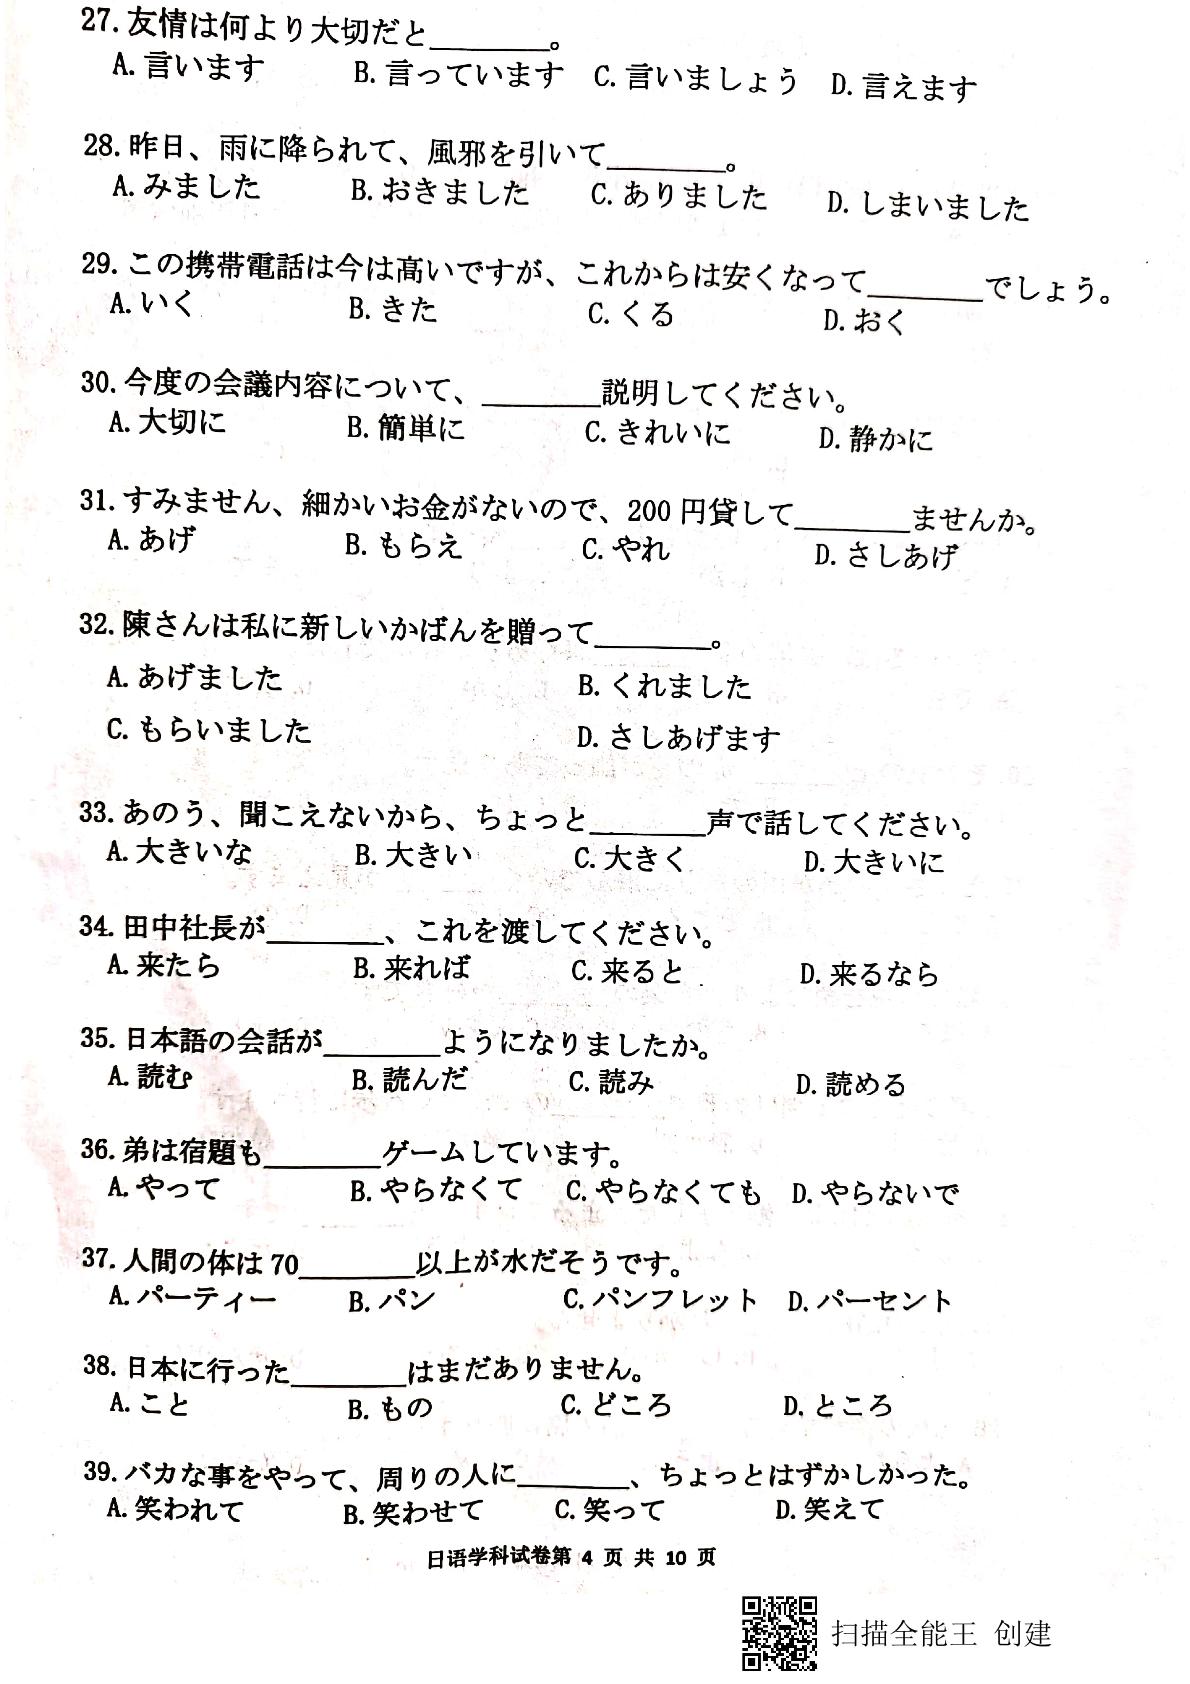 27. 友情は何より大切だと________。
A. 言います B. 言っています C. 言いましょう D. 言えます
28. 昨日、雨に降られて、風邪を引いて________。
A. みました B. おきました C. ありました D. しまいました
29. この携帯電話は今は高いですが、これからは安くなって________でしょう。
A. いく B. きた C. くる D. おく
30. 今度の会議内容について、________説明してください。
A. 大切に B. 簡単に C. きれいに D. 静かに
31. すみません、細かいお金がないので、200 円貸して________ませんか。
A. あげ B. もらえ C. やれ D. さしあげ
32. 陳さんは私に新しいかばんを贈って________。
A. あげました B. くれました
C. もらいました D. さしあげます
33. あのう、聞こえないから、ちょっと________声で話してください。
A. 大きいな B. 大きい C. 大きく D. 大きいに
34. 田中社長が________、これを渡してください。
A. 来たら B. 来れば C. 来ると D. 来るなら
35. 日本語の会話が________ようになりましたか。
A. 読む B. 読んだ C. 読み D. 読める
36. 弟は宿題も________ゲームしています。
A. やって B. やらなくて C. やらなくても D. やらないで
37. 人間の体は 70________以上が水だそうです。
A. パーティー B. パン C. パンフレット D. パーセント
38. 日本に行った________はまだありません。
A. こと B. もの C. どころ D. ところ
39. バカな事をやって、周りの人に________、ちょっとはずかしかった。
A. 笑われて B. 笑わせて C. 笑って D. 笑えて
日语学科试卷第 4 页 共 10 页
扫描全能王 创建